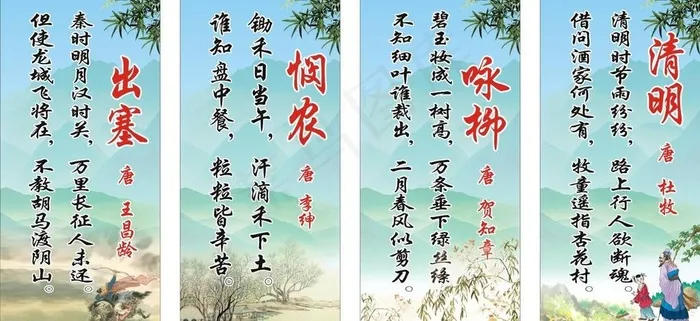 出塞
唐 王昌龄
秦时明月汉时关，万里长征人未还。
但使龙城飞将在，不教胡马渡阴山。
悯农
唐 李绅
锄禾日当午，汗滴禾下土。
谁知盘中餐，粒粒皆辛苦。
咏柳
唐 贺知章
碧玉妆成一树高，万条垂下绿丝绦
不知细叶谁裁出，二月春风似剪刀。
清明
唐 杜牧
清明时节雨纷纷，路上行人欲断魂。
借问酒家何处有，牧童遥指杏花村。